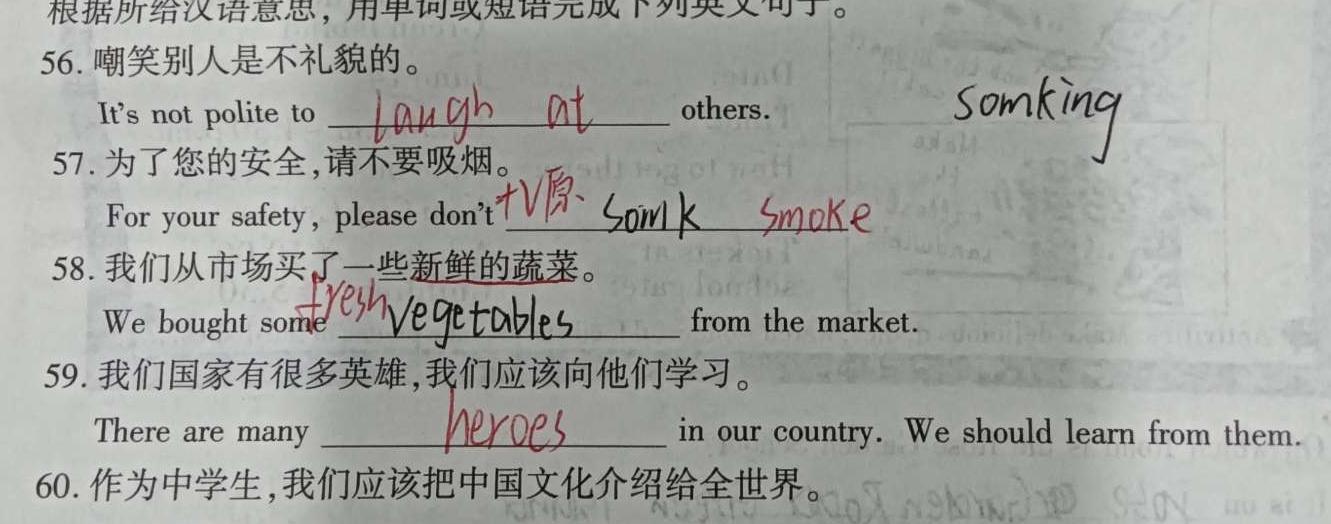 根据所给汉语意思，用单词或短语完成下列英文句子。
56. 嘲笑别人是不礼貌的。
It's not polite to laugh at others.
somking
57. 为了您的安全,请不要吸烟。
For your safety, please don't +V原. somk smoke
58. 我们从市场买了一些新鲜的蔬菜。
We bought some fresh vegetables from the market.
59. 我们国家有很多英雄,我们应该向他们学习。
There are many heroes in our country. We should learn from them.
60. 作为中学生,我们应该把中国文化介绍给全世界。